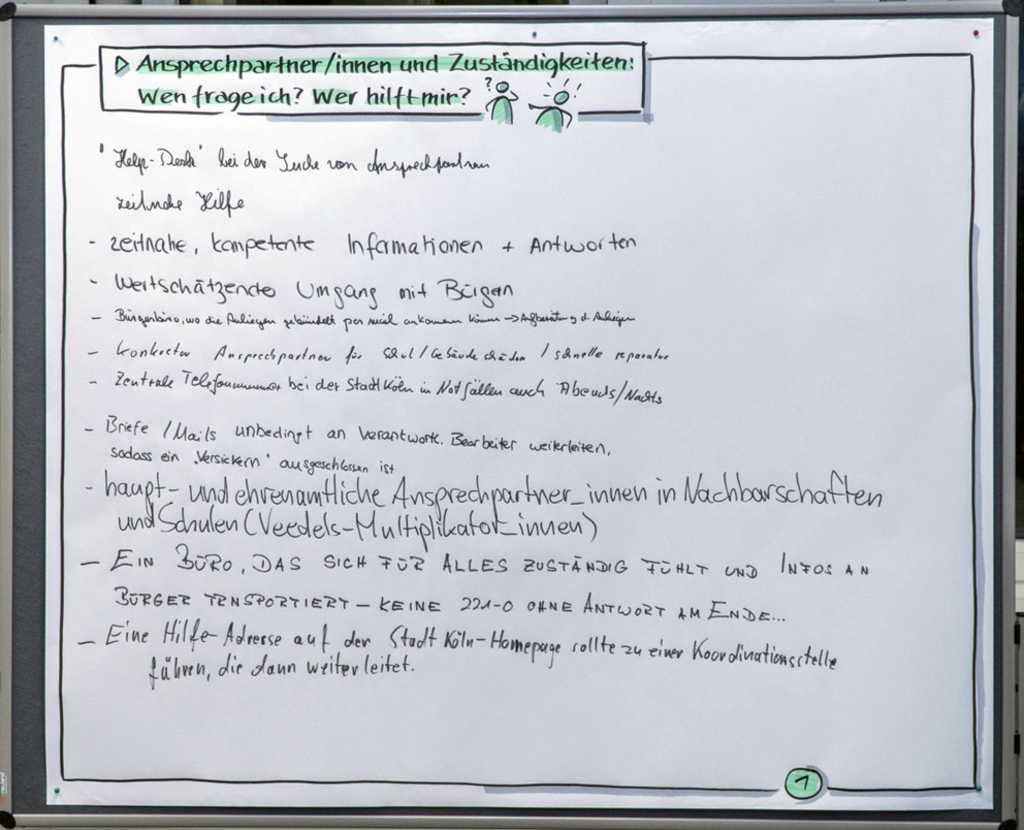 Ansprechpartner/innen und Zuständigkeiten:
Wen frage ich? Wer hilft mir?
? !
"Help-Desk" bei der Suche von Ansprechpartnern
zeitnahe Hilfe
- zeitnahe, kompetente Informationen + Antworten
- Wertschätzender Umgang mit Bürgern
- Bürgerbüro, wo die Anliegen gebündelt per mail ankommen können → d. Anliegen
- Konkreter Ansprechpartner für Schul/Gebäudeschäden / schnelle reparatur
- Zentrale Telefonnummer bei der Stadt Köln in Notfällen auch Abends/Nachts
- Briefe / Mails unbedingt an verantwork. Bearbeiter weiterleiten,
sodass ein "Versickern" ausgeschlossen ist
- haupt- und ehrenamtliche Ansprechpartner_innen in Nachbarschaften
und Schulen (Veedels-Multiplikator_innen)
- EIN BÜRO, DAS SICH FÜR ALLES ZUSTÄNDIG FÜHLT UND INFOS AN
BÜRGER TRNSPORTIERT - KEINE 221-0 OHNE ANTWORT AM ENDE...
- Eine Hilfe-Adresse auf der Stadt Köln-Homepage sollte zu einer Koordinationsstelle
führen, die dann weiterleitet.
1